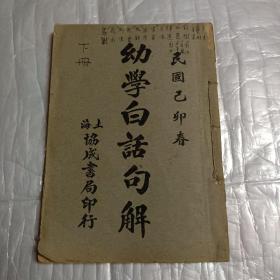 民國己卯春
幼學白話句解
上海
協成書局印行
下冊